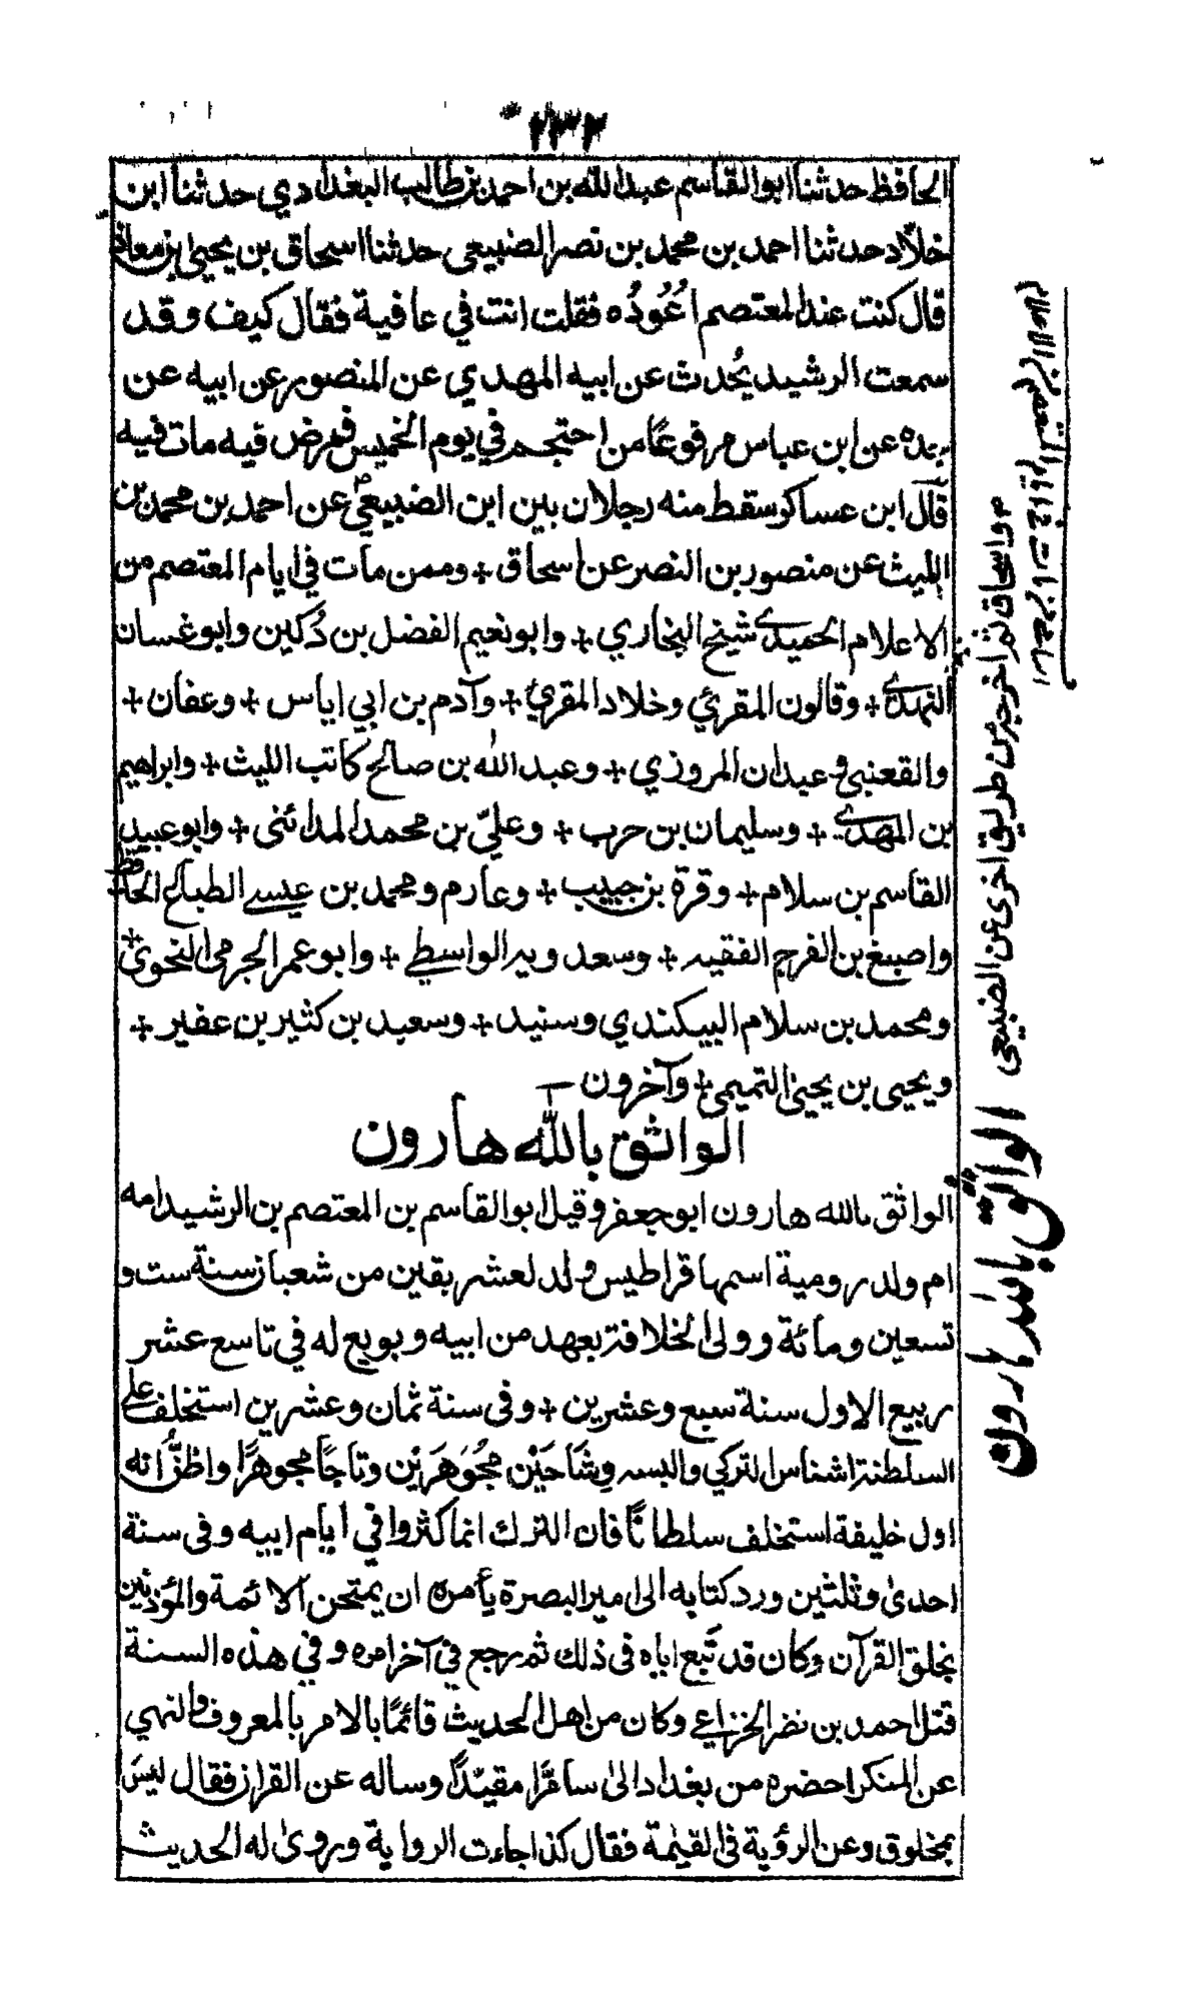 ٢٣٢
الحافظ حدثنا ابو القاسم عبد الله بن احمد بن طالب البغدادي حدثنا ابن
خلاد حدثنا احمد بن محمد بن نصر الضبيعى حدثنا اسحاق بن يحيى بن معاذ
قال كنت عند المعتصم اعُودُه فقلت انت في عافية فقال كيف وقد
سمعت الرشيد يُحدث عن ابيه المهدي عن المنصور عن ابيه عن
جده عن ابن عباس مرفوعًا من احتجم في يوم الخميس فمرض فيه مات فيه
قال ابن عساكر سقط منه رجلان بين ابن الضبيعى عن احمد بن محمد بن
الليث عن منصور بن النصر عن اسحاق + وممن مات في ايام المعتصم من
الاعلام الحميدي شيخ البخاري + وابو نعيم الفضل بن دُكين وابو غسان
النهدي + وقالون المقرئ وخلاد المقرئ + وآدم بن ابي اياس + وعفان +
والقعنبى وعبدان المروزي + وعبد الله بن صالح كاتب الليث + وابراهيم
بن المهدي + وسليمان بن حرب + وعليّ بن محمد المدائنى + وابو عبيد
القاسم بن سلام + وقرة بن حبيب + وعارم ومحمد بن عيسى الطباع الحافظ
واصبغ بن الفرج الفقيه + وسعدويه الواسطي + وابو عمر الجرمى النحوي +
ومحمد بن سلام البيكندي وسنيد + وسعيد بن كثير بن عفير +
ويحيى بن يحيى التميمى + وآخرون
الواثق بالله هارون
الواثق بالله هارون ابو جعفر وقيل ابو القاسم بن المعتصم بن الرشيد امه
ام ولد رومية اسمها قراطيس ولد لعشر بقين من شعبان سنة ست و
تسعين ومائة وولى الخلافة بعهد من ابيه وبويع له في تاسع عشر
ربيع الاول سنة سبع وعشرين + وفى سنة ثمان وعشرين استخلف على
السلطنة اشناس التركي والبسه وِشَاحَيْن مُجَوهَرَيْن وتاجًا مجوهرًا واظنُّ انه
اول خليفة استخلف سلطانًا فان الترك انما كثروا في ايام ابيه وفى سنة
احدى وثلثين ورد كتابه الى امير البصرة يأمره ان يمتحن الائمة والمؤذنين
بخلق القرآن وكان قد تبع اباه فى ذلك ثم رجع في آخر امره وفي هذه السنة
قتل احمد بن نصر الخزاعي وكان من اهل الحديث قائمًا بالامر بالمعروف والنهي
عن المنكر احضره من بغداد الى سامرّا مقيّدًا وساله عن القران فقال ليس
بمخلوق وعن الرؤية فى القيمة فقال كذا جاءت الرواية وروى له الحديث
واسحاق ثم اخرجه من طريق اخرى عن الضبيعى
الواثق بالله هارون